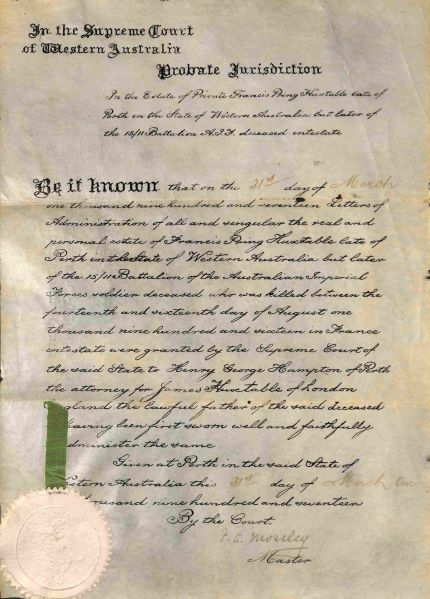 In the Supreme Court
of Western Australia
Probate Jurisdiction
In the Estate of Private Francis Bing Huxtable late of
Perth in the State of Western Australia but later of
the 15/11 Battalion A.I.F. deceased intestate
Be it known that on the 31st day of March
one thousand nine hundred and seventeen Letters of
Administration of all and singular the real and
personal estate of Francis Bing Huxtable late of
Perth in the State of Western Australia but later
of the 15/11 Battalion of the Australian Imperial
Forces soldier deceased who was killed between the
fourteenth and sixteenth day of August one
thousand nine hundred and sixteen in France
intestate were granted by the Supreme Court of
the said State to Henry George Hampton of Perth
the attorney for James Huxtable of London
England the lawful father of the said deceased
having been first sworn well and faithfully
administer the same
Given at Perth in the said State of
Western Australia this 31st day of March one
thousand nine hundred and seventeen
By the Court
F. A. Moseley
Master